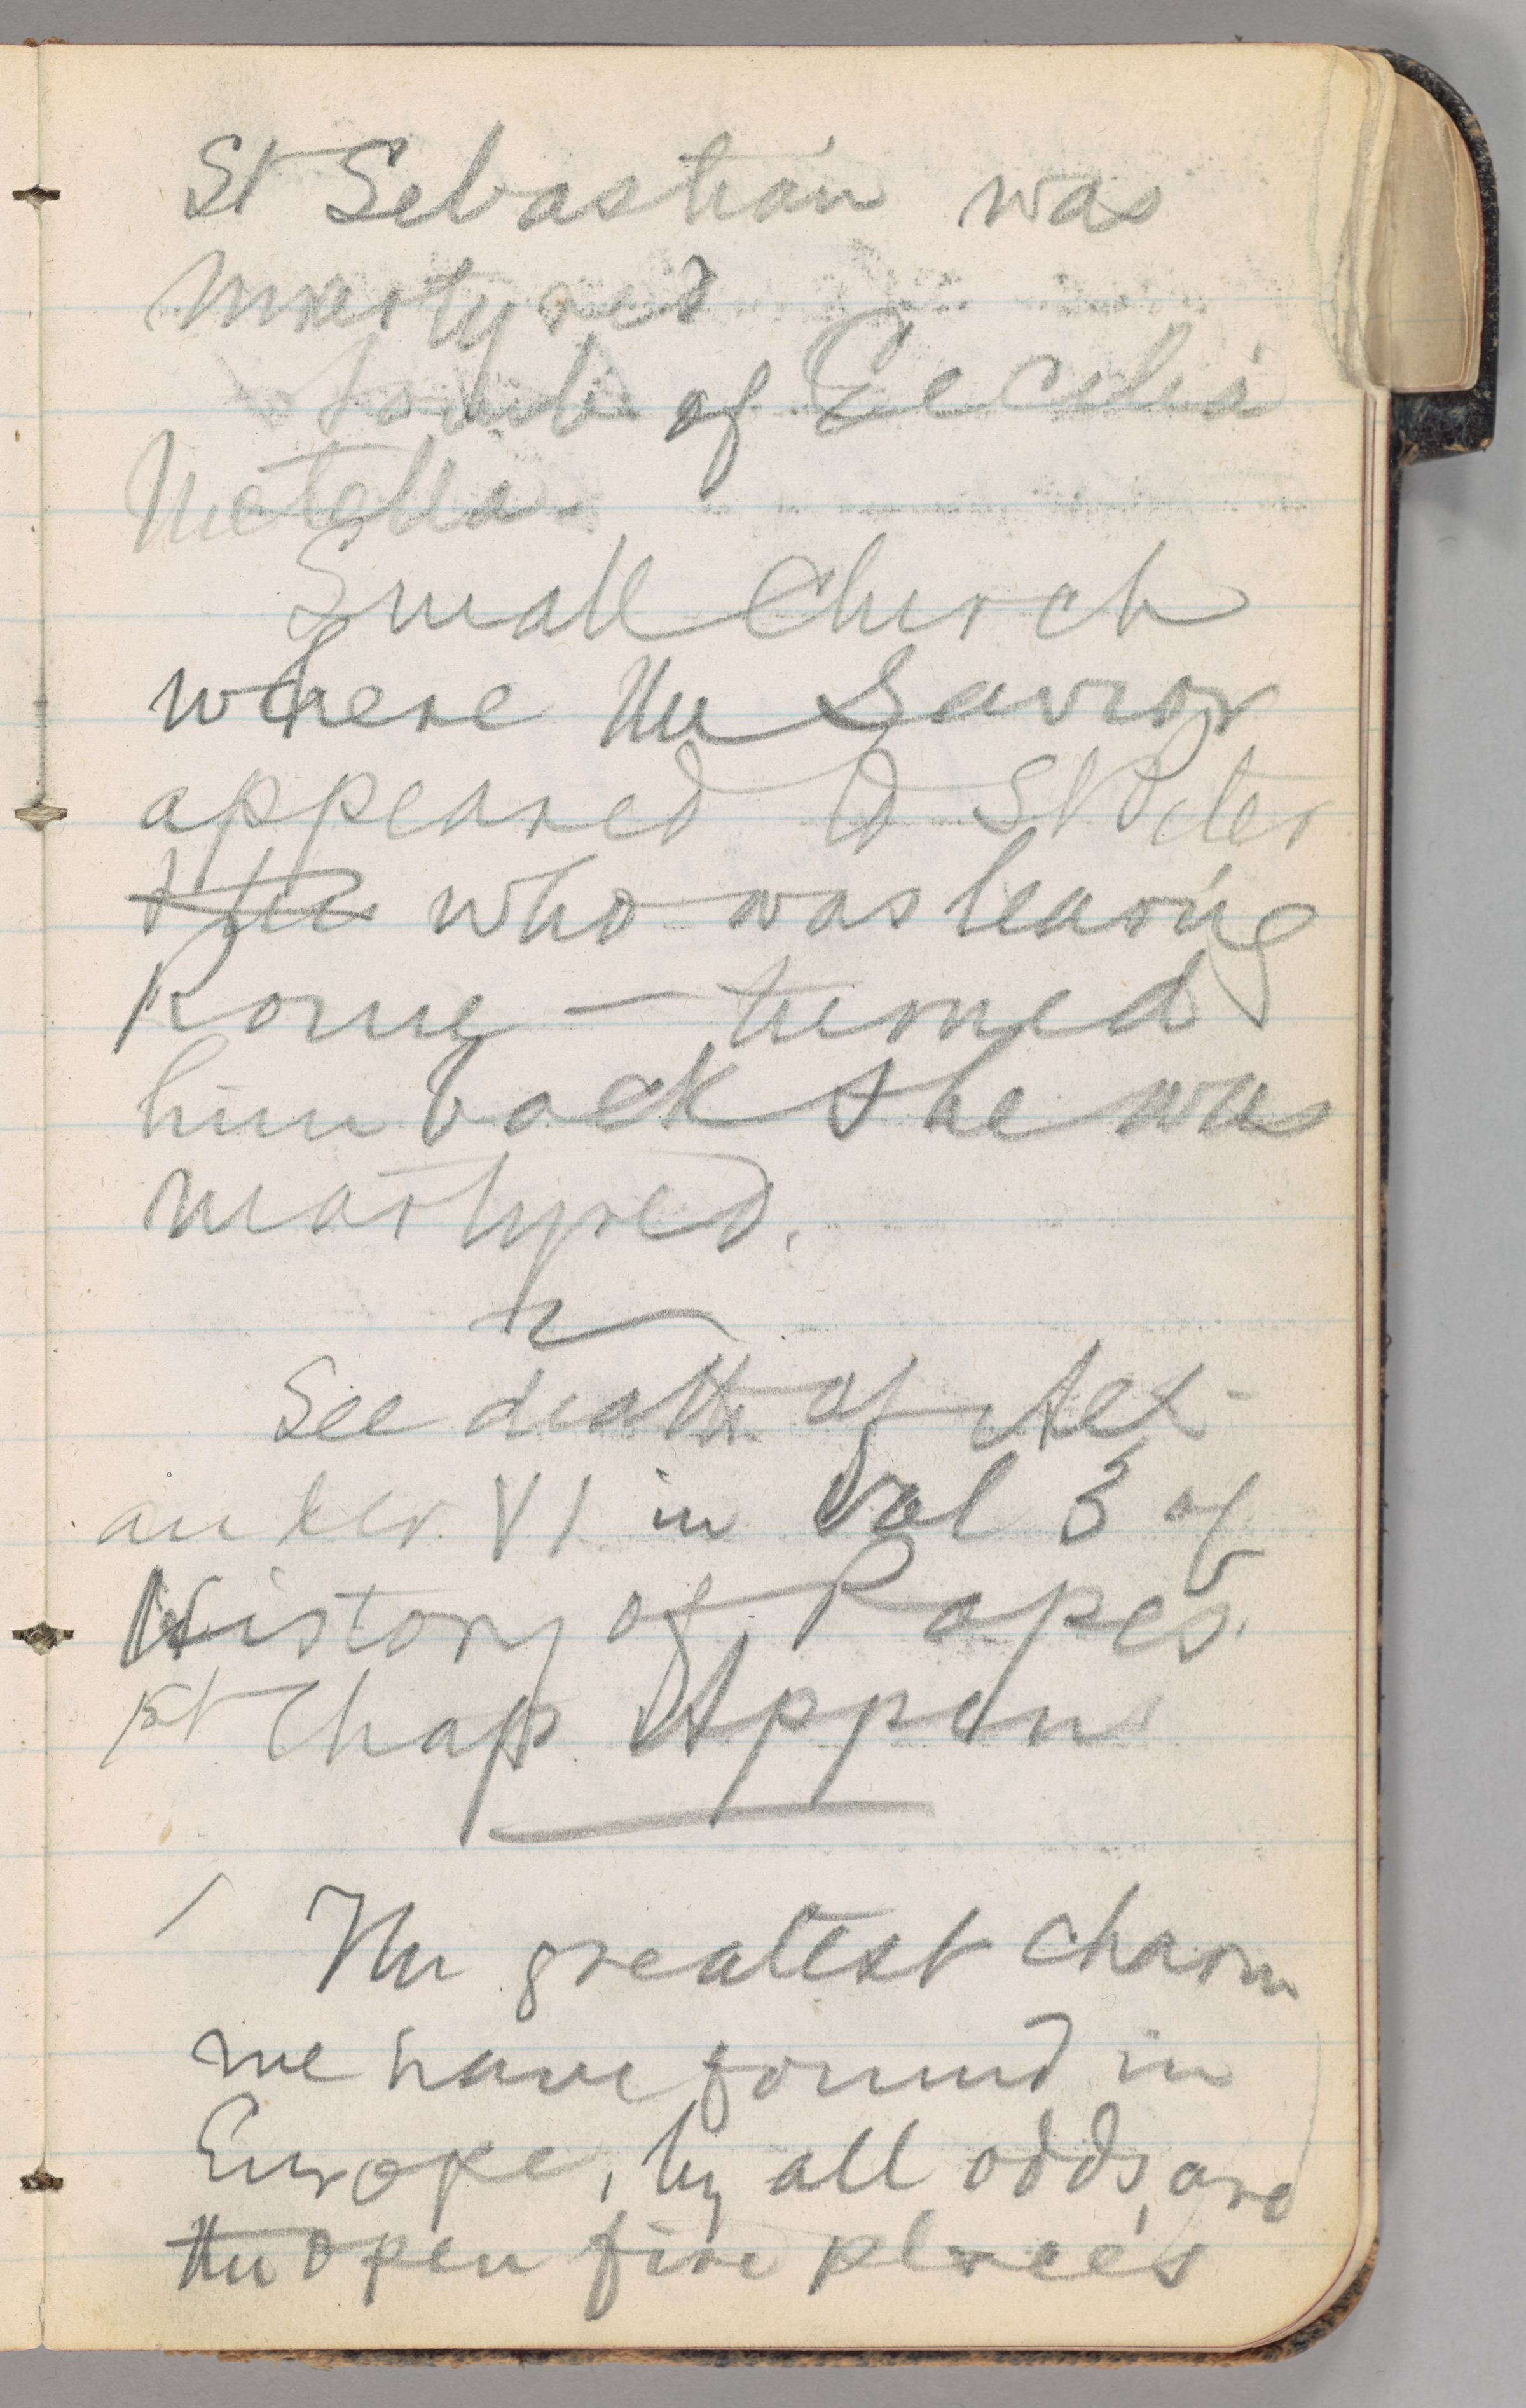 St Sebastian was
martyred
Tomb of Cecilia
Metella.
Small Church
where the Savior
appeared to St Peter
who was leaving
Rome – turned
him back & he was
martyred.
See death of Alex-
ander VI in Vol 3 of
History of Popes.
1st Chap Appen
The greatest charm
we have found in
Europe, by all odds, are
the open fire places